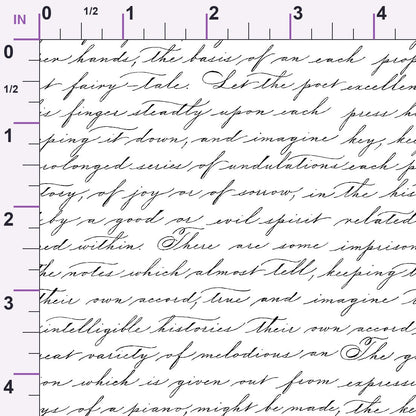 IN 0 1/2 1 2 3 4
0
hands, the basis of an each
fairy-tale. Let the poet excellen
1/2
finger steadily upon each press
1
ping it down, and imagine key,
prolonged series of undulations each p
tory, of joy or of sorrow, in the his
2
by a good or evil spirit related
ed within. There are some imprison
the notes which almost tell, keeping
3
their own accord, true and imagine
intelligible histories their own accord
eat variety of melodious an The g
4
on which is given out from expresse
ys of a piano, might be made, the